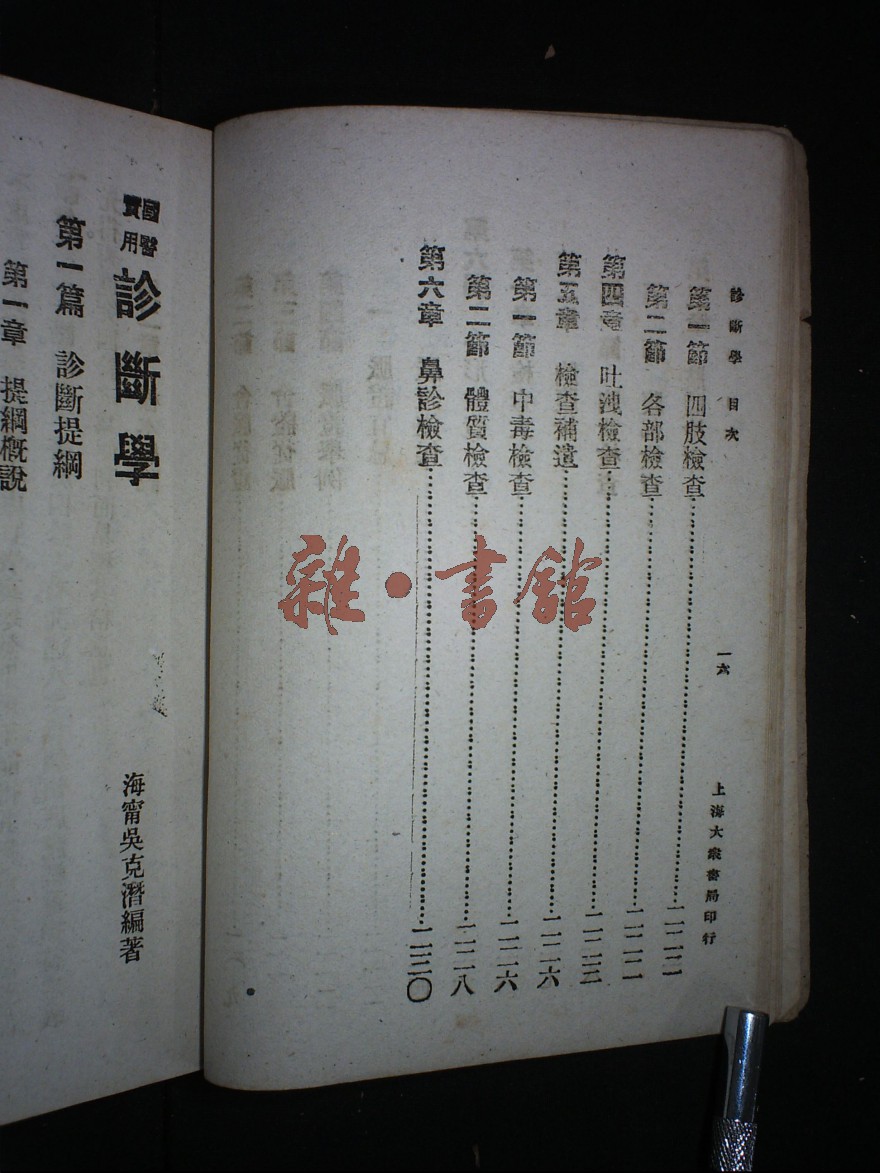 診斷學 目次 一六 上海大衆書局印行
第一節 四肢檢查……二二二
第二節 各部檢查……二二二
第四章 吐洩檢查……二二三
第五章 檢查補遺……二二六
第一節 中毒檢查……二二六
第二節 體質檢查……二二八
第六章 鼻診檢查……二三〇
國醫
實用
診斷學
海甯吳克潛編著
第一篇 診斷提綱
第一章 提綱概說
雜·書館